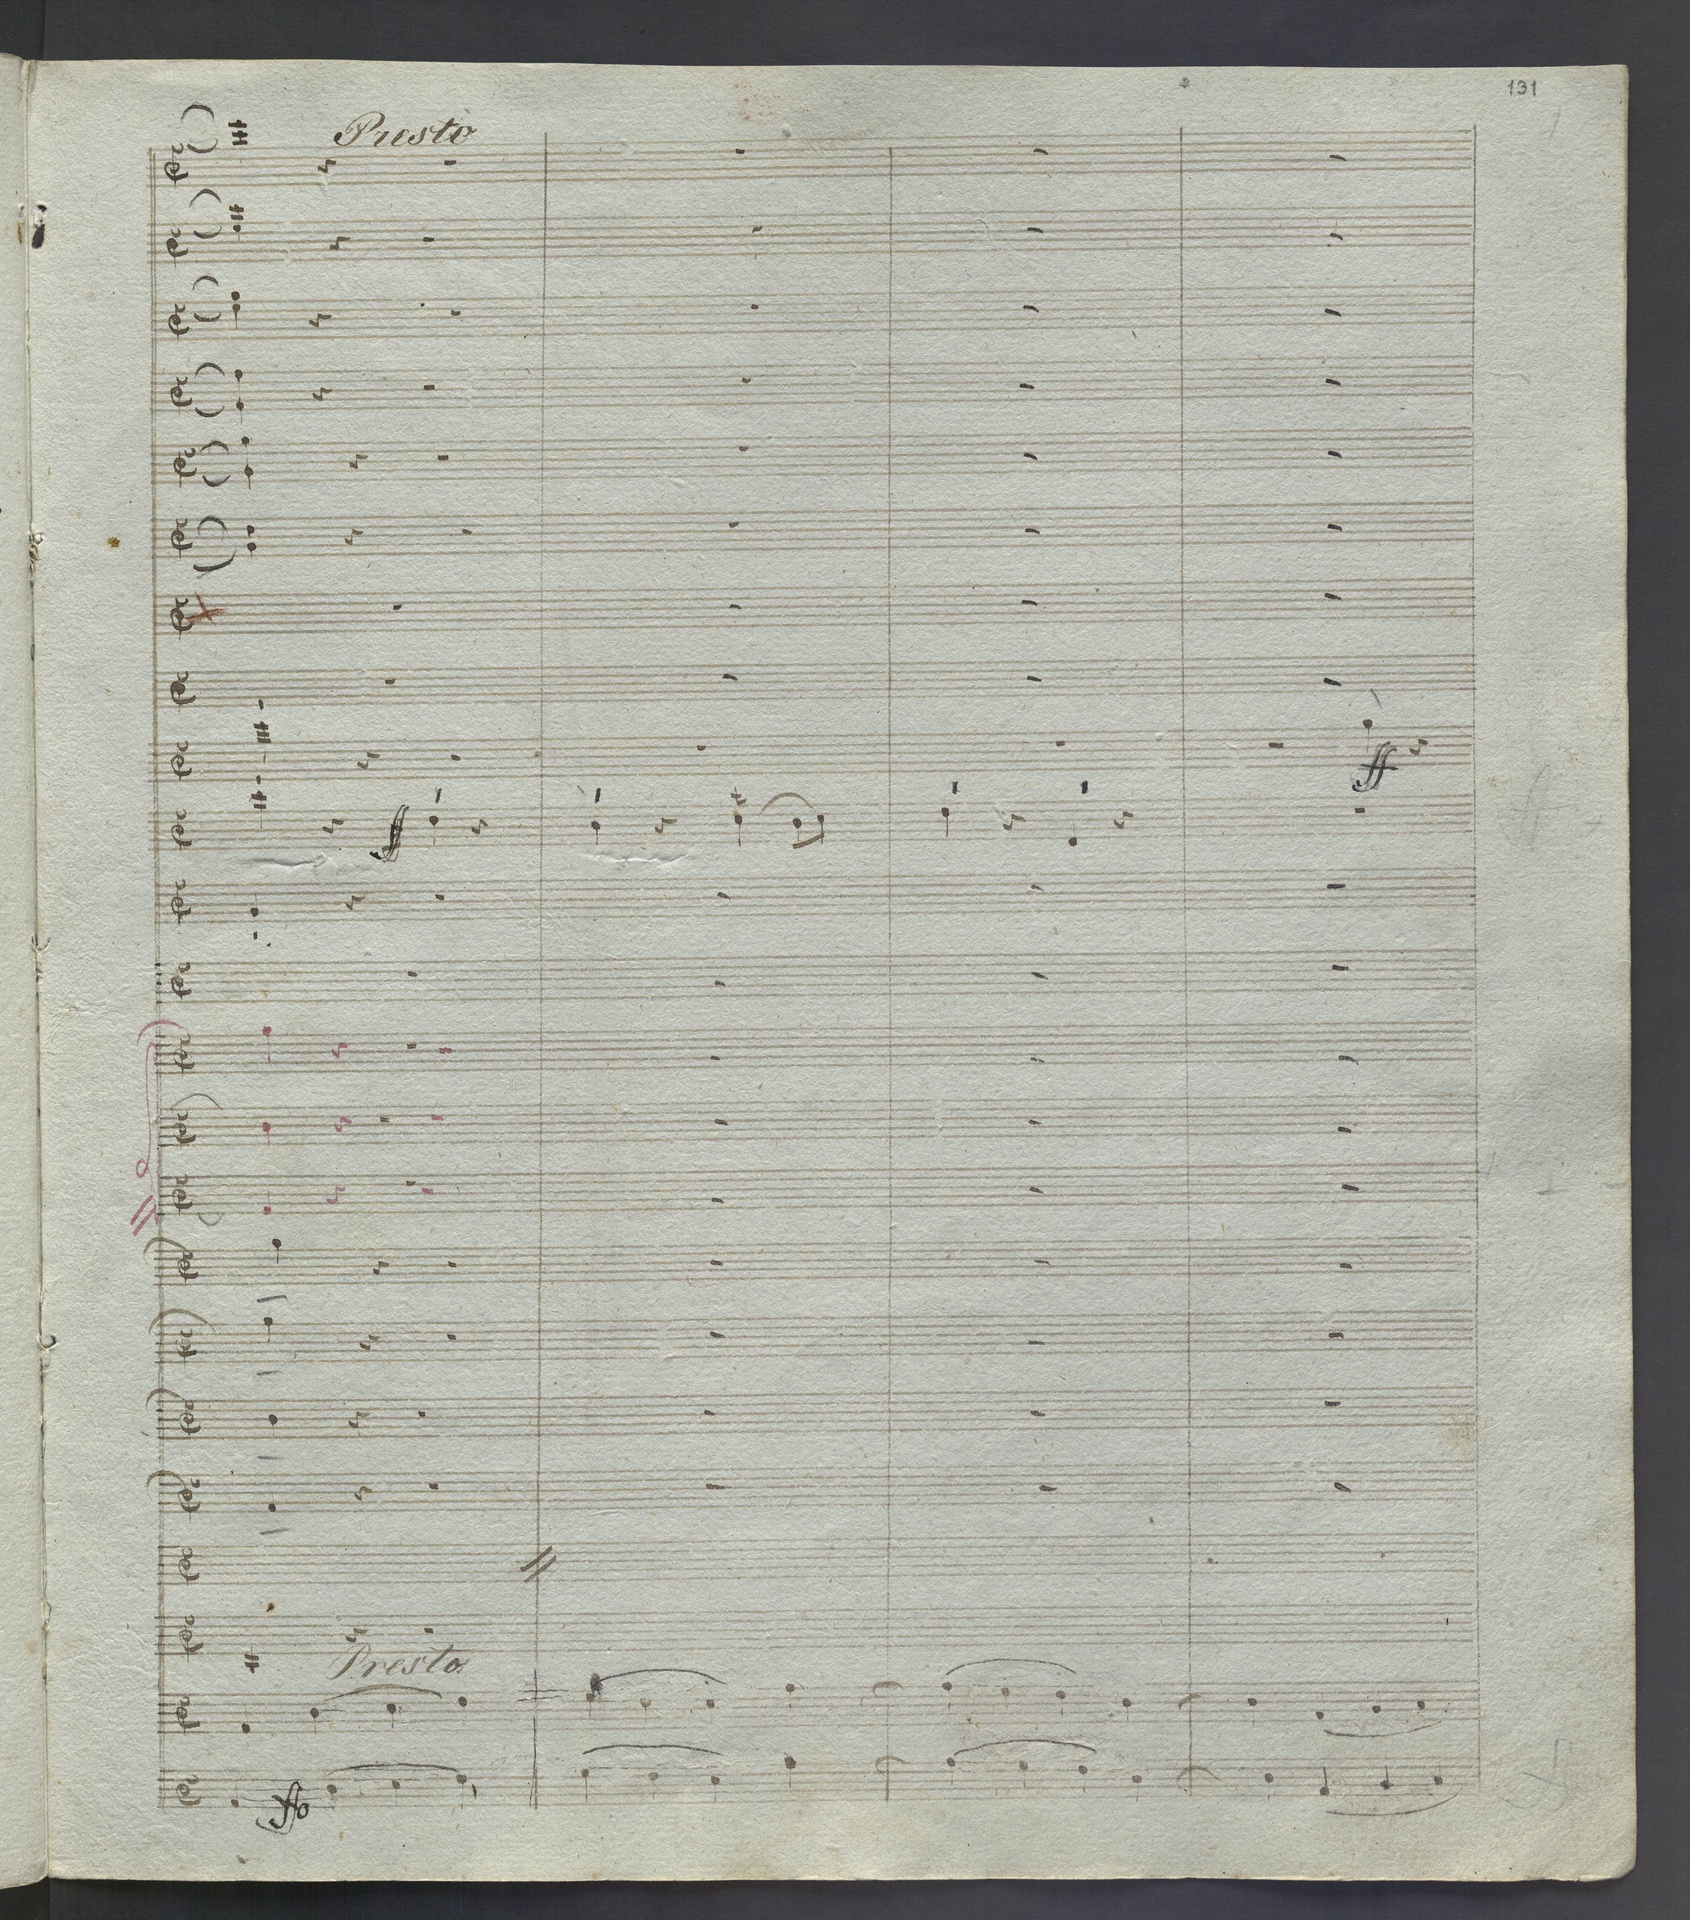 131
Presto
ff
ff
Presto
ffo